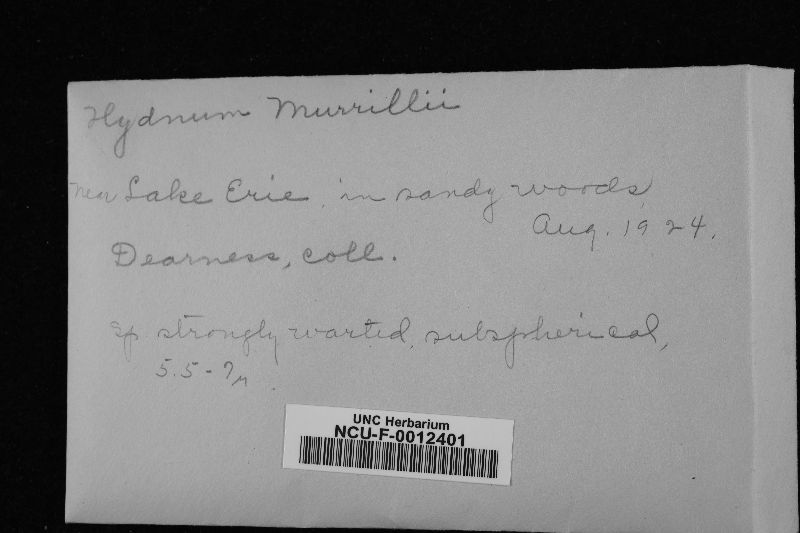 Hydnum Murrillii
near Lake Erie, in sandy woods,
Aug. 1924.
Dearness, coll.
Sp strongly warted, subspherical,
5.5-7µ.
UNC Herbarium
NCU-F-0012401